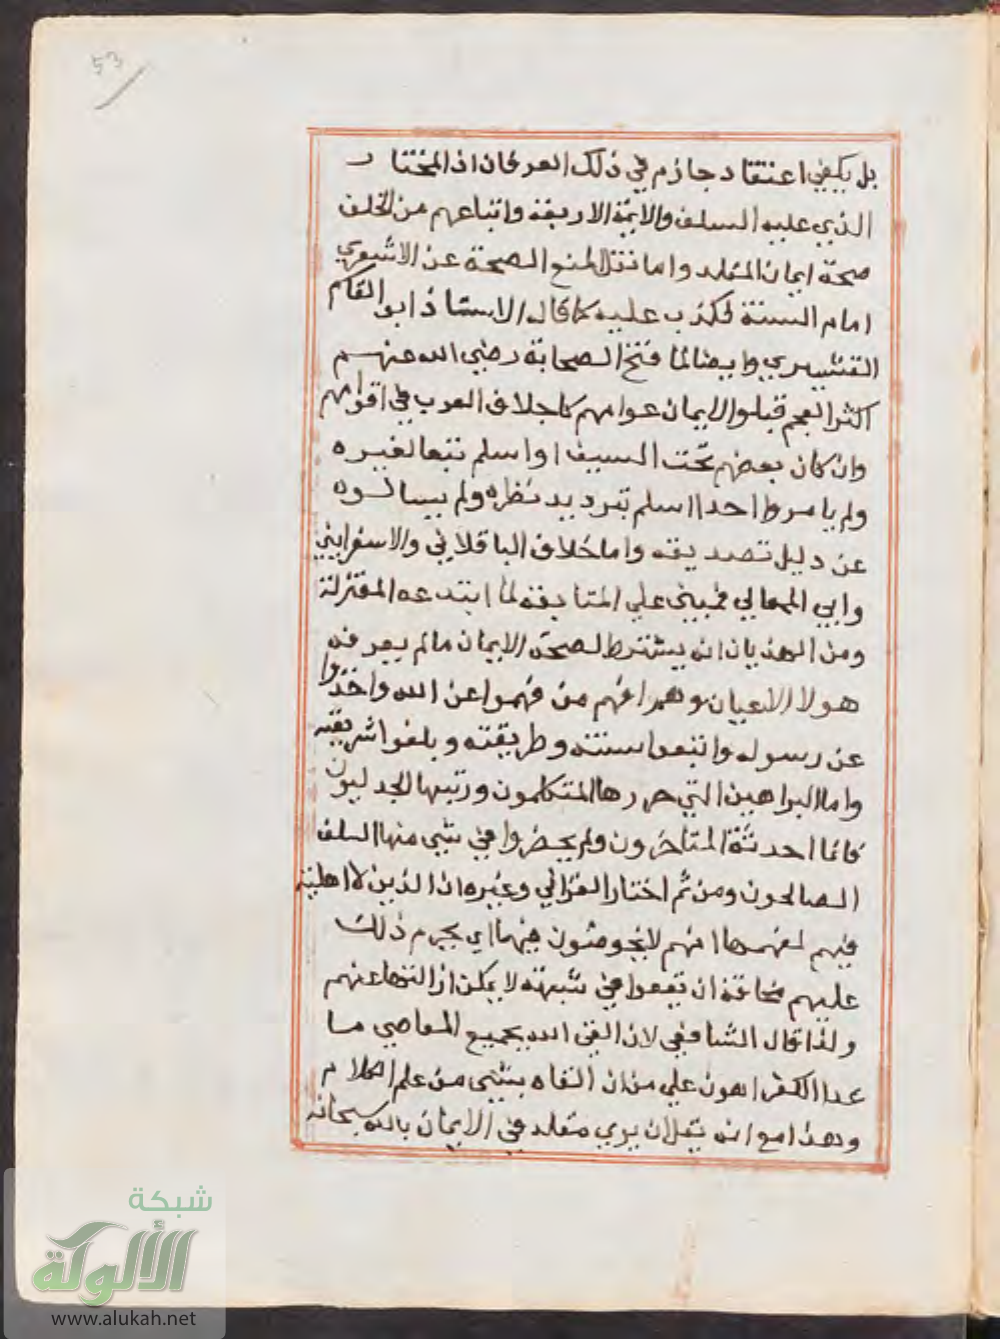 53
بل يكفي اعتقاد جازم في ذلك العرفان اذ المختار
الذي عليه السلف والايمة الاربعة واتباعهم من الخلف
صحة ايمان المقلد واما نقل المنع الصحة عن الاشعري
امام السنة فكذب عليه كما قال الاستاذ ابو القاسم
القشيري وايضا لما فتح الصحابة رضي الله عنهم
اكثر العجم قبلوا الايمان عوامهم كاجلاف العرب في اقرارهم
وان كان بعضهم تحت السيف او اسلم تبعا لغيره
ولم يامروا احدا اسلم بترديد نظره ولم يسالوه
عن دليل تصديقه واما خلاف الباقلاني والاسفرايني
وابي المعالي فمبني علي المتابعة لما ابتدعه المعتزلة
ومن الهذيان انه يشترط لصحة الايمان مالم يعرفه
هولا الاعيان وهم من فهموا عن الله واخذوا
عن رسوله واتبعوا سنته وطريقته وبلغوا شريعته
واما البراهين التي حررها المتكلمون ورتبها الجدليون
فانما احدثة المتاخرون ولم يخضوا في شي منها السلف
الصالحون ومن ثم اختار الغزالي وغيره ان الذين لا اهلية
فيهم لفهمها انهم لا يخوضون فيها اي يحرم ذلك
عليهم مخافة ان يقعوا في شبهة لا يمكن ازالتها عنهم
ولذا قال الشافعي لان القي الله بجميع المعاصي ما
عدا الكفر اهون علي من ان القاه بشي من علم الكلام
وهذا مع انه يقل ان يري مقلد في الايمان بالله سبحانه
شبكة
الألوكة
www.alukah.net